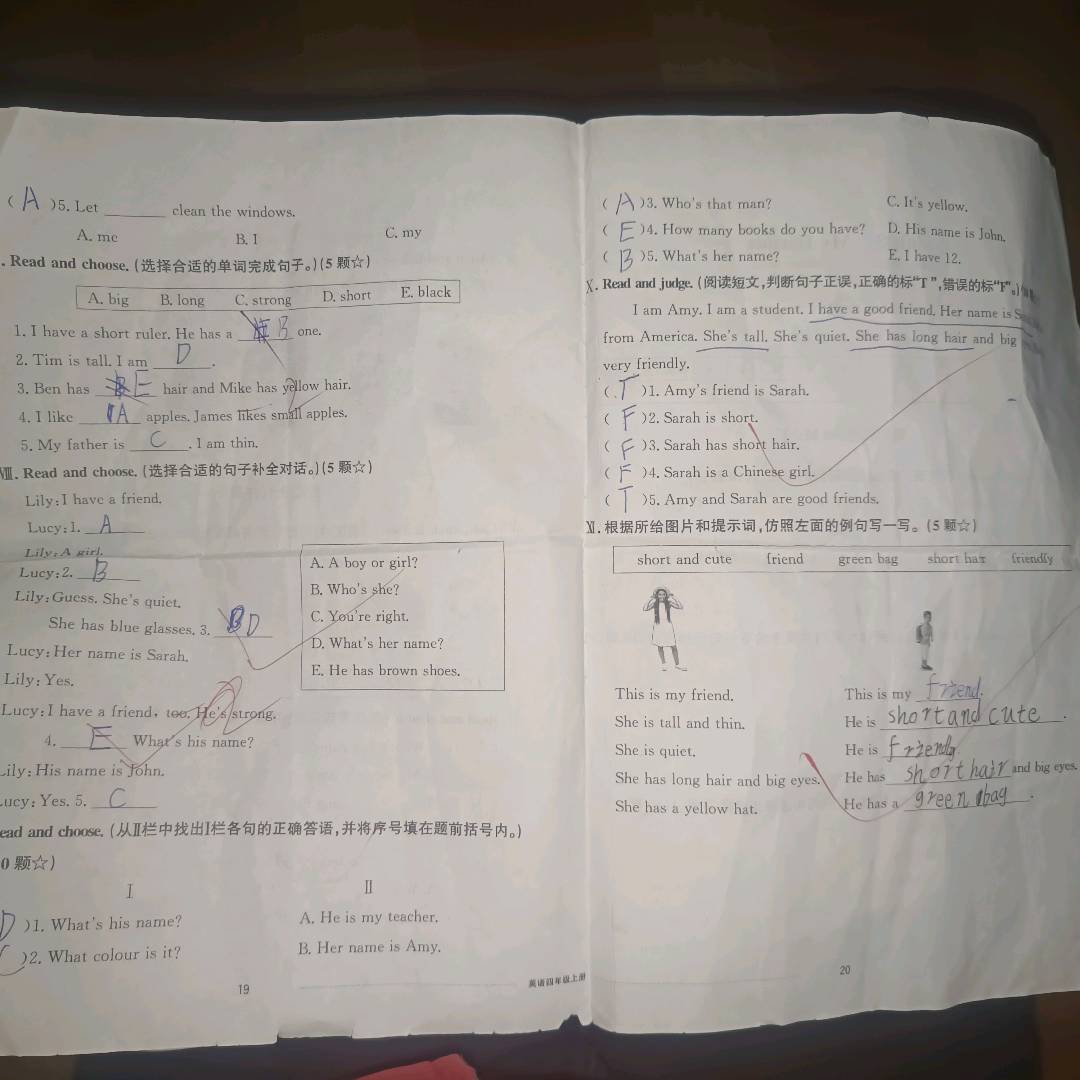 ( A )5. Let ______ clean the windows.
A. me B. I C. my
. Read and choose. (选择合适的单词完成句子。)(5 颗☆)
A. big B. long C. strong D. short E. black
1. I have a short ruler. He has a B one.
2. Tim is tall. I am D .
3. Ben has E hair and Mike has yellow hair.
4. I like A apples. James likes small apples.
5. My father is C . I am thin.
Ⅷ. Read and choose. (选择合适的句子补全对话。)(5 颗☆)
Lily: I have a friend.
Lucy: 1. A
Lily: A girl.
Lucy: 2. B
Lily: Guess. She's quiet.
She has blue glasses. 3. D
Lucy: Her name is Sarah.
Lily: Yes.
Lucy: I have a friend, too. He's strong.
4. E What's his name?
Lily: His name is John.
Lucy: Yes. 5. C
A. A boy or girl?
B. Who's she?
C. You're right.
D. What's her name?
E. He has brown shoes.
ead and choose. (从Ⅱ栏中找出Ⅰ栏各句的正确答语,并将序号填在题前括号内。)
0 颗☆)
Ⅰ Ⅱ
D )1. What's his name? A. He is my teacher.
)2. What colour is it? B. Her name is Amy.
19
英语四年级上册
( A )3. Who's that man? C. It's yellow.
( E )4. How many books do you have? D. His name is John.
( B )5. What's her name? E. I have 12.
Ⅹ. Read and judge. (阅读短文,判断句子正误,正确的标"T",错误的标"F"。)
I am Amy. I am a student. I have a good friend. Her name is
from America. She's tall. She's quiet. She has long hair and big
very friendly.
( T )1. Amy's friend is Sarah.
( F )2. Sarah is short.
( F )3. Sarah has short hair.
( F )4. Sarah is a Chinese girl.
( T )5. Amy and Sarah are good friends.
Ⅺ. 根据所给图片和提示词,仿照左面的例句写一写。(5 颗☆)
short and cute friend green bag short hair friendly
This is my friend. This is my friend.
She is tall and thin. He is short and cute .
She is quiet. He is friendly
She has long hair and big eyes. He has short hair and big eyes.
She has a yellow hat. He has a green bag .
20